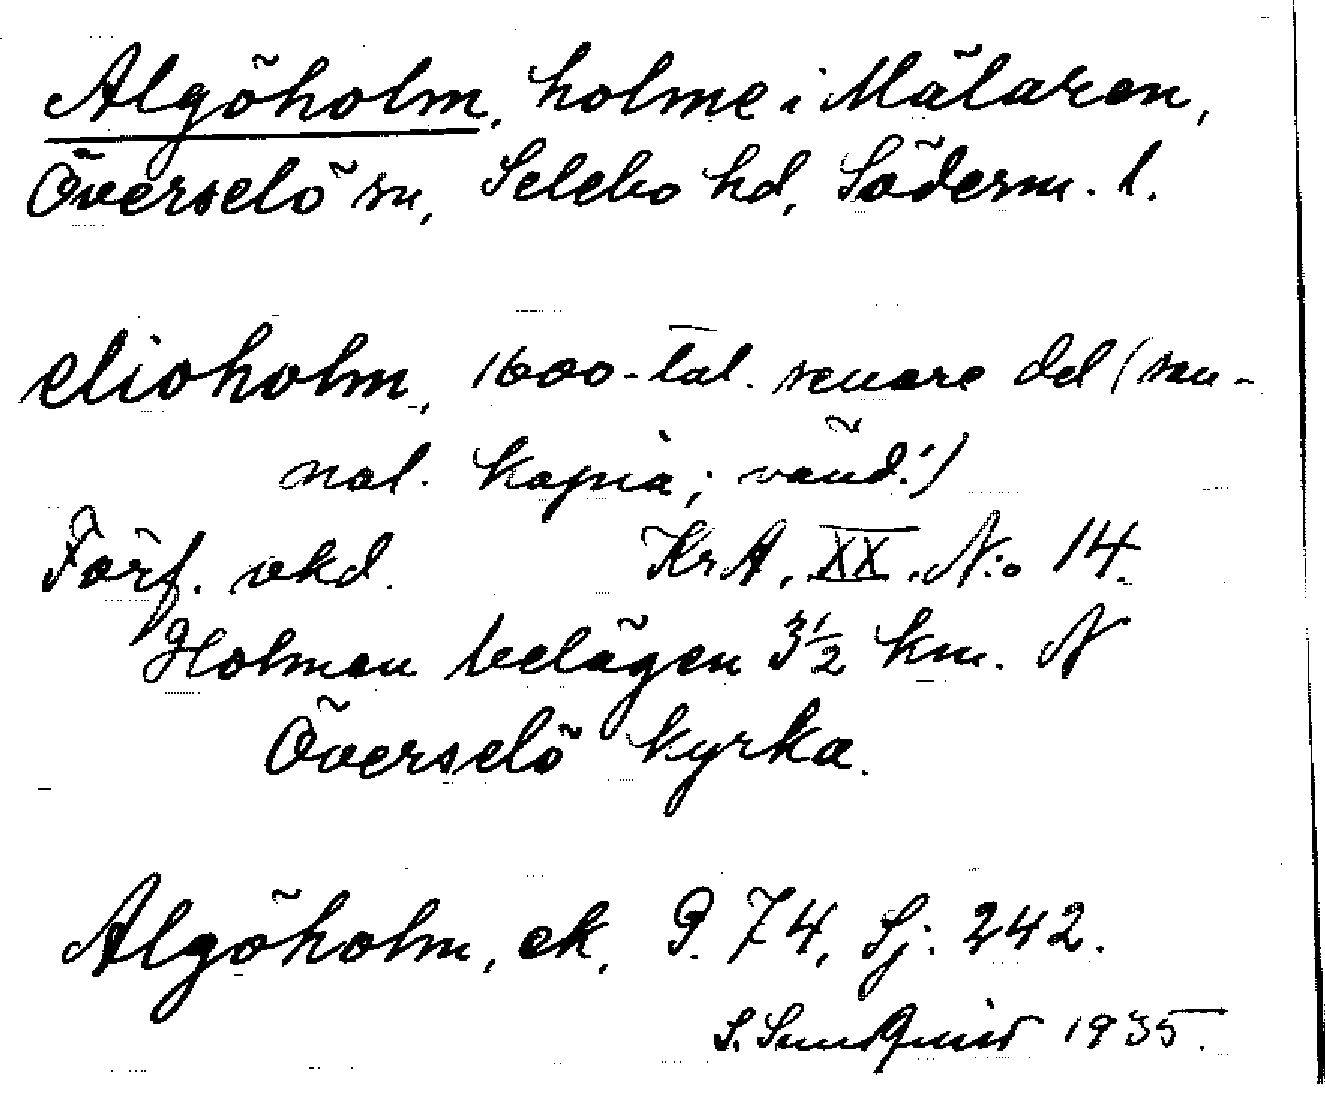 Algöholm, holme i Mälaren,
Överselö sn, Selebo hd, Söderm. l.
elioholm, 1600-tal. senare del (sen-
nal. kopia; vänd!)
Förf. okd. KrA, XX, N:o 14.
Holmen belägen 3½ km. N
Överselö kyrka.
Algöholm, ek, P. 74, Sj. 242.
S. Sundqvist 1935.